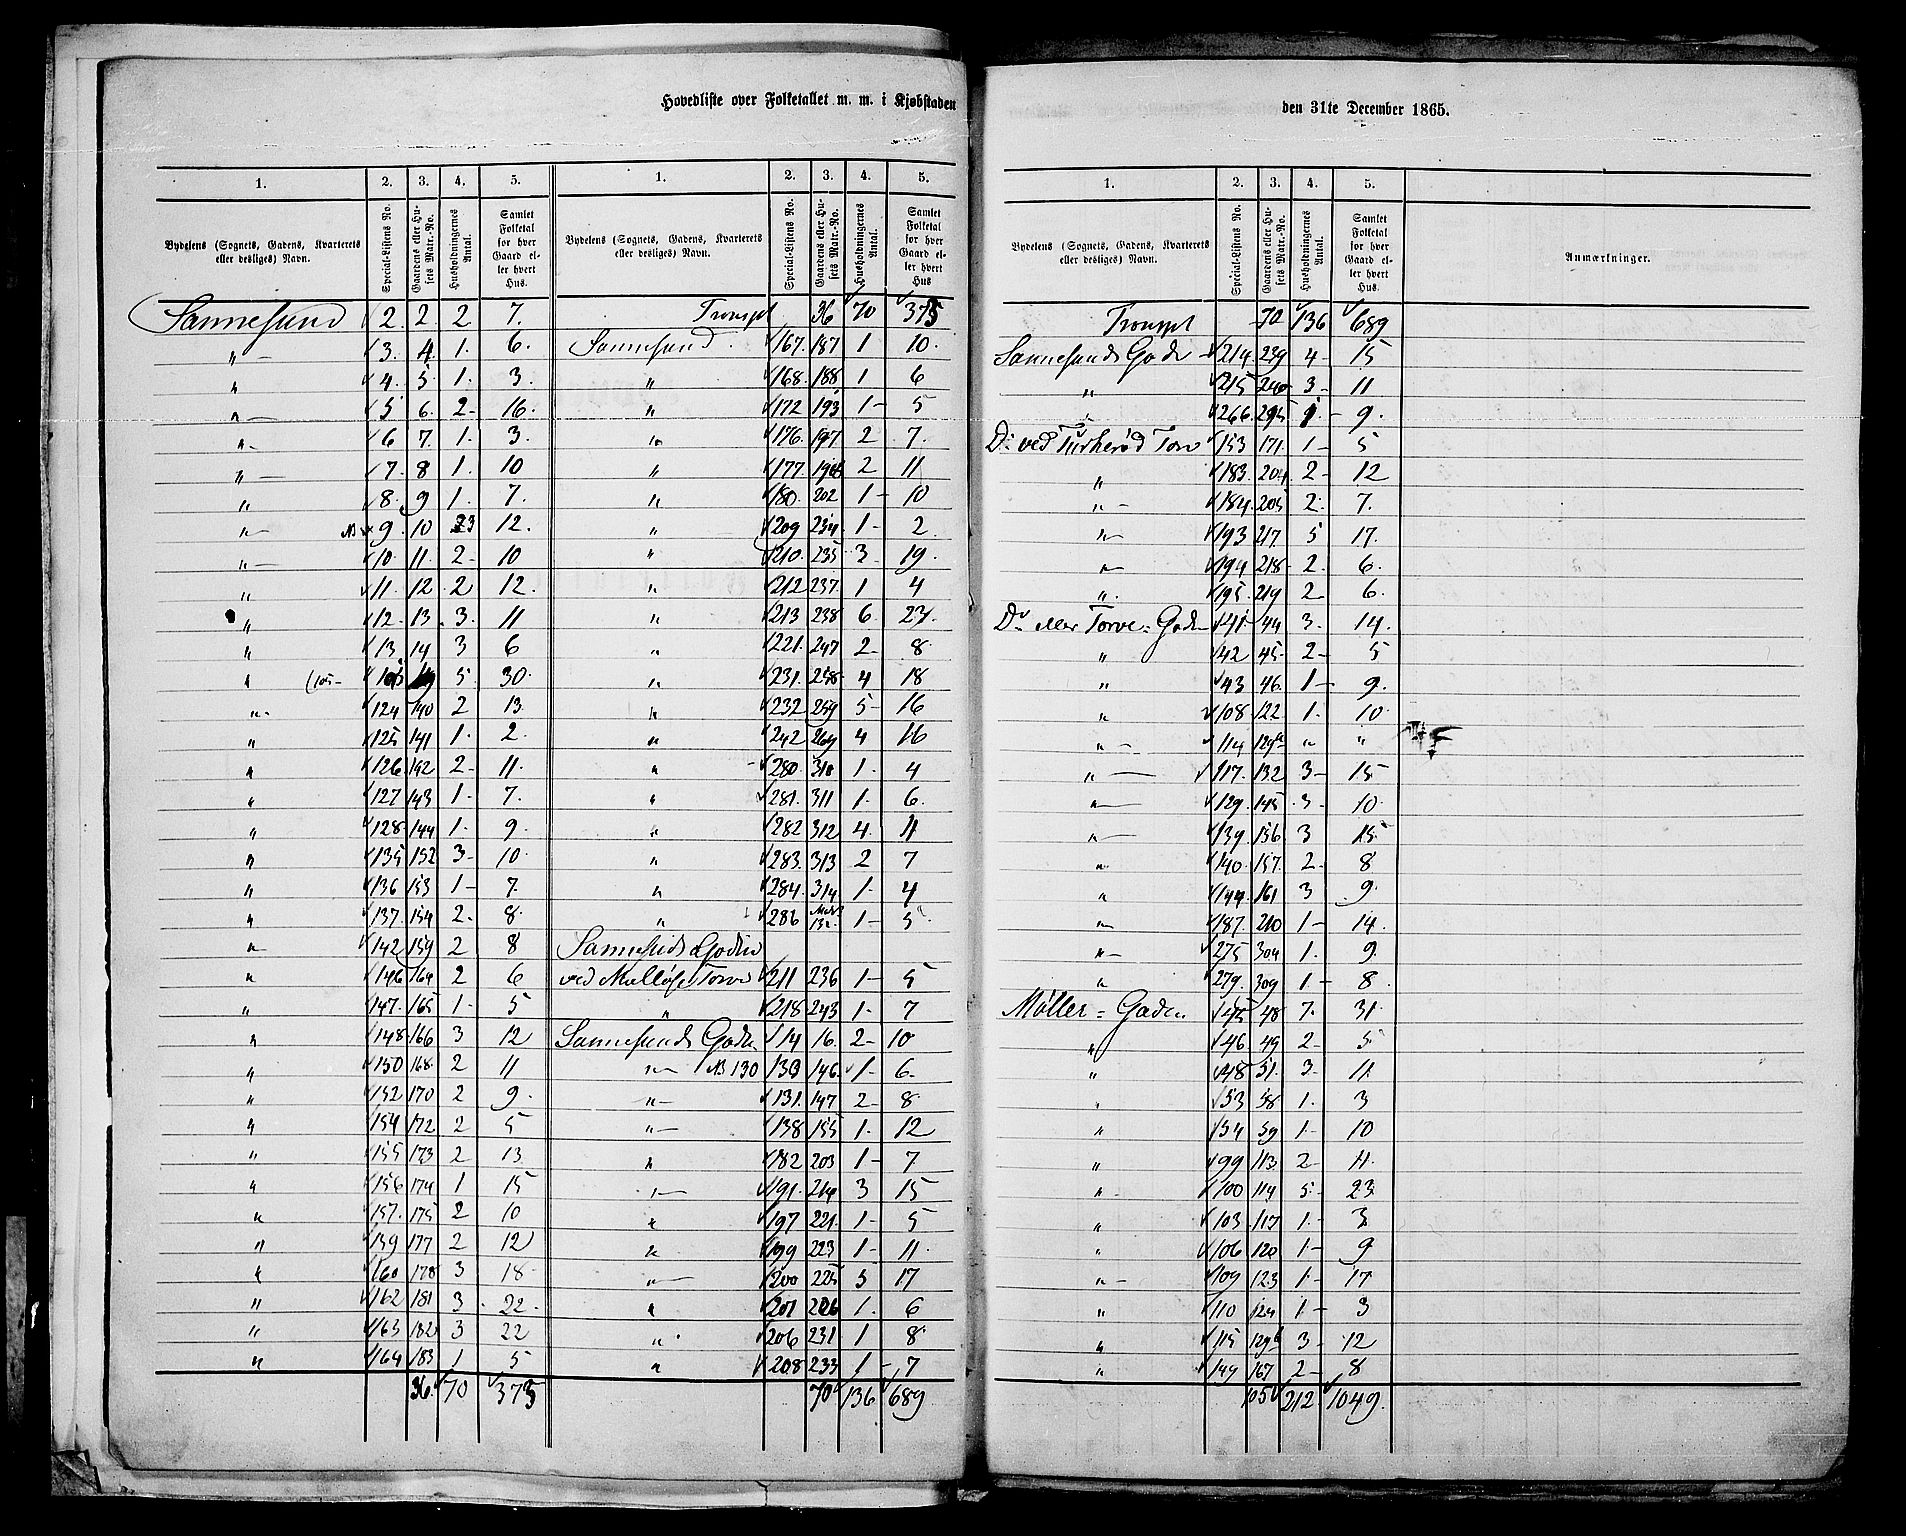 Hovedliste over Folketallet m. m. i Kjøbstaden
1. 2. 3. 4. 5. 1. 2. 3. 4. 5.
Bydelens (Sognets, Gadens, Kvarterets eller desliges) Navn. Special-Listens No. Gaardens eller Husets Matr.-No. Husholdningernes Antal. Samlet Folketal for hver Gaard eller hvert Hus. Bydelens (Sognets, Gadens, Kvarterets eller desliges) Navn. Special-Listens No. Gaardens eller Husets Matr.-No. Husholdningernes Antal. Samlet Folketal for hver Gaard eller hvert Hus
Sannesund 2. 2 2 7. Transpt 36 70 375
" 3. 4. 1. 6. Sannesund. 167. 187 1 10.
" 4. 5 1. 3. " 168. 188 1 6
" 5 6. 2- 16. " 172 193 1- 5
" 6 7. 1. 3. " 176. 197 2 7.
" 7. 8 1. 10 " 177. 198 2 11
" 8. 9 1. 7. " 180. 202 1- 10
" 9. 10 3 12. " 209 234. 1- 2.
" 10. 11. 2- 10 " 210. 235. 3- 19.
" 11. 12. 2 12. " 212 237. 1 4
" 12. 13. 3. 11 " 213 238 6. 27.
" 13 14 3 6 " 221. 247 2- 8.
" (105- 5. 30. " 231. 258. 4 18
" 124 140 2 13 " 232 259 5- 16
" 125 141 1. 2. " 242 269 4 16
" 126 142 2- 11. " 280. 310 1. 4
" 127 143 1- 7. " 281. 311 1. 6.
" 128 144 1. 9. " 282 312 4. 11
" 135 152 3- 10. " 283. 313 2 7
" 136 153 1- 7. " 284. 314 1- 4
" 137. 154 2- 8. " 286 132. 1- 5
" 142 159 2 8 Sannesunds Gaden
" 146 164 2 6 ved Torve 211 236 1- 5
" 147. 165 1- 5 " 218 243 1- 7
" 148 166 3 12 Sannesunds Gaden 14 16. 2- 10
" 150 168. 2 11 " NB 130 130 146. 1- 6.
" 152 170 2 9. " 131. 147 2- 8
" 154 172 2 5 " 138 155 1. 12
" 155 173 2 13 " 182 203 1- 7
" 156 174 1 15 " 191. 214 3 15
" 157. 175 2 10 " 197 221. 1- 5
" 159 177 2 12 " 199 223 1- 11.
" 160 178 3 18 " 200 225 5 17
" 162 181 3. 22. " 201 226 1. 6
" 163 182 3 22 " 206 231 1 8.
" 164 183 1 5 " 208 233 1- 7
36. 70 375 70 136 689
den 31te December 1865.
1. 2. 3. 4. 5.
Bydelens (Sognets, Gadens, Kvarterets eller desliges) Navn. Special-Listens No. Gaardens eller Husets Matr.-No. Husholdningernes Antal. Samlet Folketal for hver Gaard eller hvert Hus Anmærkninger.
Transpt 70 136 689
Sannesunds Gade 214. 239 4- 15
" 215 240 3- 11
266. 295 1- 9.
Do ved Torv 153 171. 1- 5
" 183. 204. 2- 12
" 184. 205 2. 7.
" 193 217. 5 17.
" 194 218 2. 6.
" 195. 219 2- 6.
Do eller Torve-Gaden 41 44 3. 14.
" 42 45. 2- 5
" 43 46. 1- 9.
" 108 122 1. 10.
" 114 129a " "
" 117. 132 3- 15
" 129. 145 3- 10.
" 139. 156 3 15
" 140. 157. 2- 8
" 144 161 3 9.
" 187. 210 1- 14.
" 275 304 1. 9.
" 279. 309 1- 8.
Møller-Gaden 45 48 7. 31
" 46. 49 2- 5
" 48 51. 3- 11.
" 53 58 1. 3
" 54 59 1- 10
" 99 113 2- 11.
" 100 114 5- 23
" 103 117 1- 3
" 106 120 1- 9
" 109 123 1- 17
" 110 124 1- 3
" 115 129b 3- 12
" 149 167 2- 8
105 212 1049.